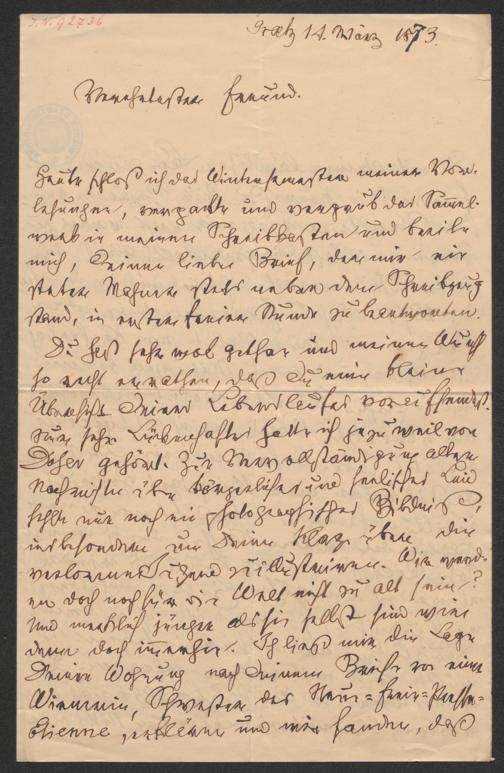 I.N. 92736
Gratz 14. März 1873.
Verehrtester Freund.
Heute schloß ich das Wintersemester meiner Vor-
lesungen, verpackte und vergrub das Sammel-
werk in meinen Schreibkasten und beeile
mich, Deinen lieben Brief, der mir ein
steter Mahner stets neben dem Schreibzeug
stand, in erster freier Stunde zu beantworten.
Du hast sehr wol gethan und meinen Wunsch
so recht errathen, daß Du eine kleine
Übersicht Deines Lebenslaufes vorausschicktest.
nur sehr Lückenhaftes hatte ich zuweil von
Daher gehört. Zur Vervollständigung aller
Nachrichten über körperliches und seelisches Leid
fehlt nur noch ein photographisches Bildniß,
insbesondere um Deine Klage über die
verlorene Jugend zu illustriren. Wir werd-
en doch noch für die Welt nicht zu alt sein?
Und merklich jünger als sie selbst sind wir
denn doch immerhin. Ich ließ mir die Lage
Deiner Wohnung nach Deinem Briefe von einer
Wienerin, Schwester des Neue-Freie-Presse-
Etienne, erklären und wir fanden, daß